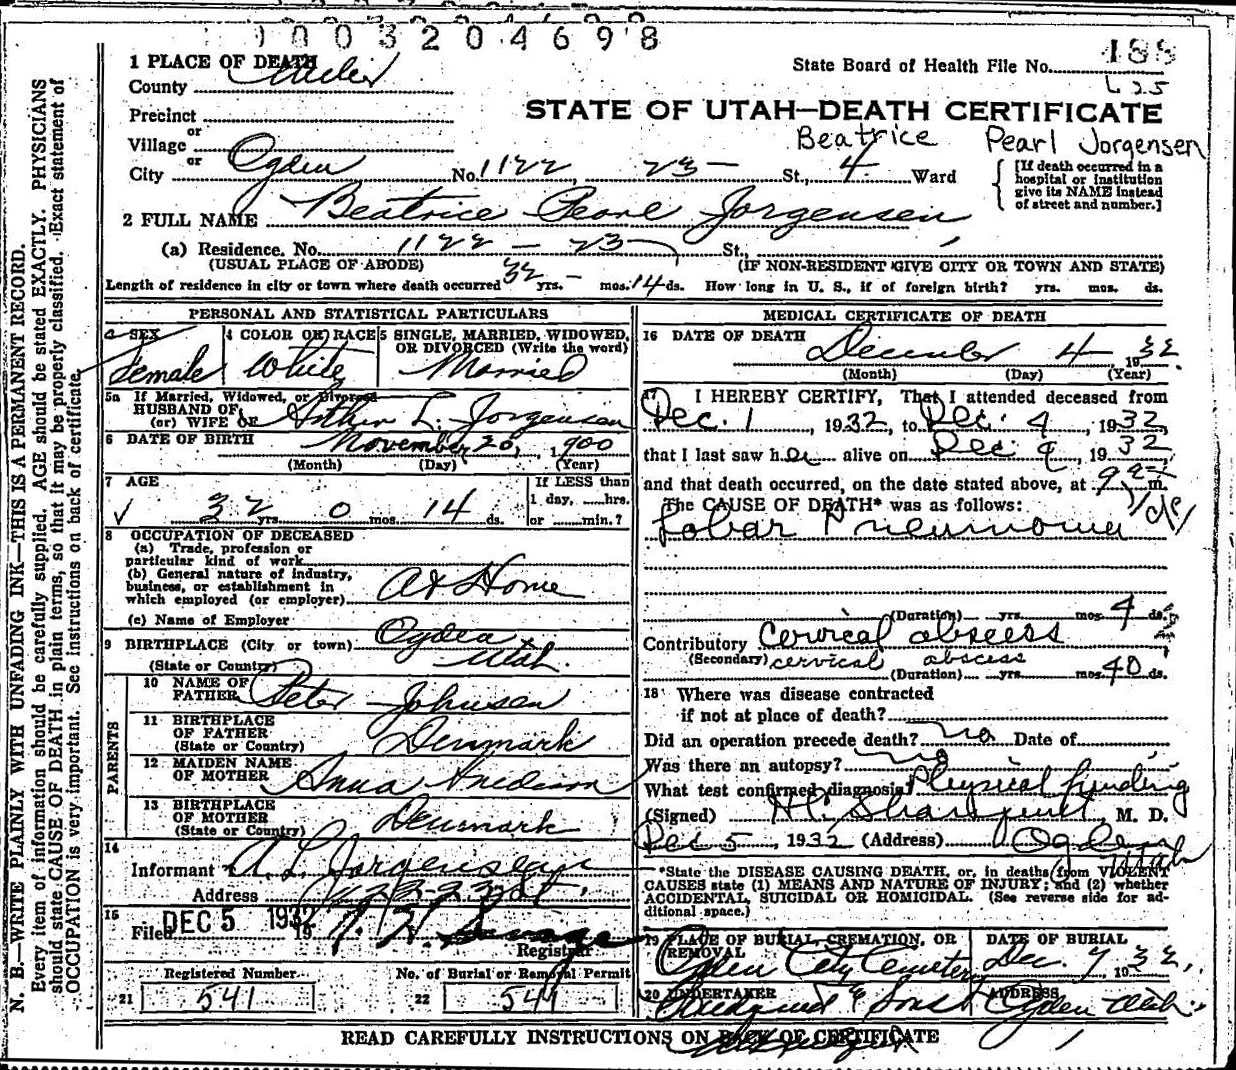 1003204698
1 PLACE OF DEATH
County Weber
State Board of Health File No. 188
Precinct
STATE OF UTAH—DEATH CERTIFICATE
or
Village
Beatrice Pearl Jorgensen
or
City Ogden No. 1122, 23 — St., 4 Ward
[If death occurred in a hospital or institution give its NAME instead of street and number.]
2 FULL NAME Beatrice Pearl Jorgensen
(a) Residence, No. 1122 — 23 St.,
(USUAL PLACE OF ABODE) (IF NON-RESIDENT GIVE CITY OR TOWN AND STATE)
Length of residence in city or town where death occurred 32 yrs. - mos. 14 ds. How long in U. S., if of foreign birth? yrs. mos. ds.
PERSONAL AND STATISTICAL PARTICULARS
3 SEX 4 COLOR OR RACE 5 SINGLE, MARRIED, WIDOWED, OR DIVORCED (Write the word)
Female White Married
5a If Married, Widowed, or Divorced
HUSBAND OF
(or) WIFE OF Arthur L. Jorgensen
6 DATE OF BIRTH November 20, 1900
(Month) (Day) (Year)
7 AGE If LESS than
1 day, hrs.
32 yrs. 0 mos. 14 ds. or min.?
8 OCCUPATION OF DECEASED
(a) Trade, profession or
particular kind of work
(b) General nature of industry,
business, or establishment in
which employed (or employer) At Home
(c) Name of Employer
9 BIRTHPLACE (City or town) Ogden
(State or Country) Utah.
PARENTS
10 NAME OF
FATHER Peter Johnson
11 BIRTHPLACE
OF FATHER
(State or Country) Denmark
12 MAIDEN NAME
OF MOTHER Anna
13 BIRTHPLACE
OF MOTHER
(State or Country) Denmark
14
Informant A. L. Jorgensen
Address
15
Filed DEC 5 1932 19
Registrar
Registered Number No. of Burial or Removal Permit
21 541 22 541
MEDICAL CERTIFICATE OF DEATH
16 DATE OF DEATH
December 4 1932
(Month) (Day) (Year)
17 I HEREBY CERTIFY, That I attended deceased from
Dec. 1, 1932, to Dec. 4, 1932,
that I last saw her alive on Dec 4, 1932
and that death occurred, on the date stated above, at m.
The CAUSE OF DEATH* was as follows:
Lobar Pneumonia
(Duration) yrs. mos. 4 ds.
Contributory Cervical abscess
(Secondary) cervical abscess
(Duration) yrs. mos. 40 ds.
18 Where was disease contracted
if not at place of death?
Did an operation precede death? no Date of
Was there an autopsy? no
What test confirmed diagnosis? Physical finding
(Signed) M. D.
Dec 5, 1932 (Address) Ogden
Utah
*State the DISEASE CAUSING DEATH, or, in deaths from VIOLENT
CAUSES state (1) MEANS AND NATURE OF INJURY; and (2) whether
ACCIDENTAL, SUICIDAL OR HOMICIDAL. (See reverse side for ad-
ditional space.)
19 PLACE OF BURIAL, CREMATION, OR REMOVAL DATE OF BURIAL
Ogden City Cemetery Dec. 7, 1932,
20 UNDERTAKER ADDRESS
& Sons Ogden Utah
READ CAREFULLY INSTRUCTIONS ON BACK OF CERTIFICATE
N. B.—WRITE PLAINLY WITH UNFADING INK—THIS IS A PERMANENT RECORD.
Every item of information should be carefully supplied. AGE should be stated EXACTLY. PHYSICIANS
should state CAUSE OF DEATH in plain terms, so that it may be properly classified. Exact statement of
OCCUPATION is very important. See instructions on back of certificate.